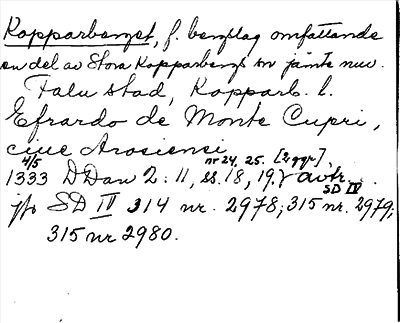 Kopparberget, f. bergslag omfattande
en del av Stora Kopparbergs sn jämte nuv.
Falu stad, Kopparb. l.
Efrardo de Monte Cupri,
ciue Arosiensi
4/5 nr 24, 25. [2 ggr].
1333 DDan 2:11, ss. 18, 19. avtr.
SD IV
jfr SD IV 314 nr. 2978; 315 nr. 2979;
315 nr 2980.